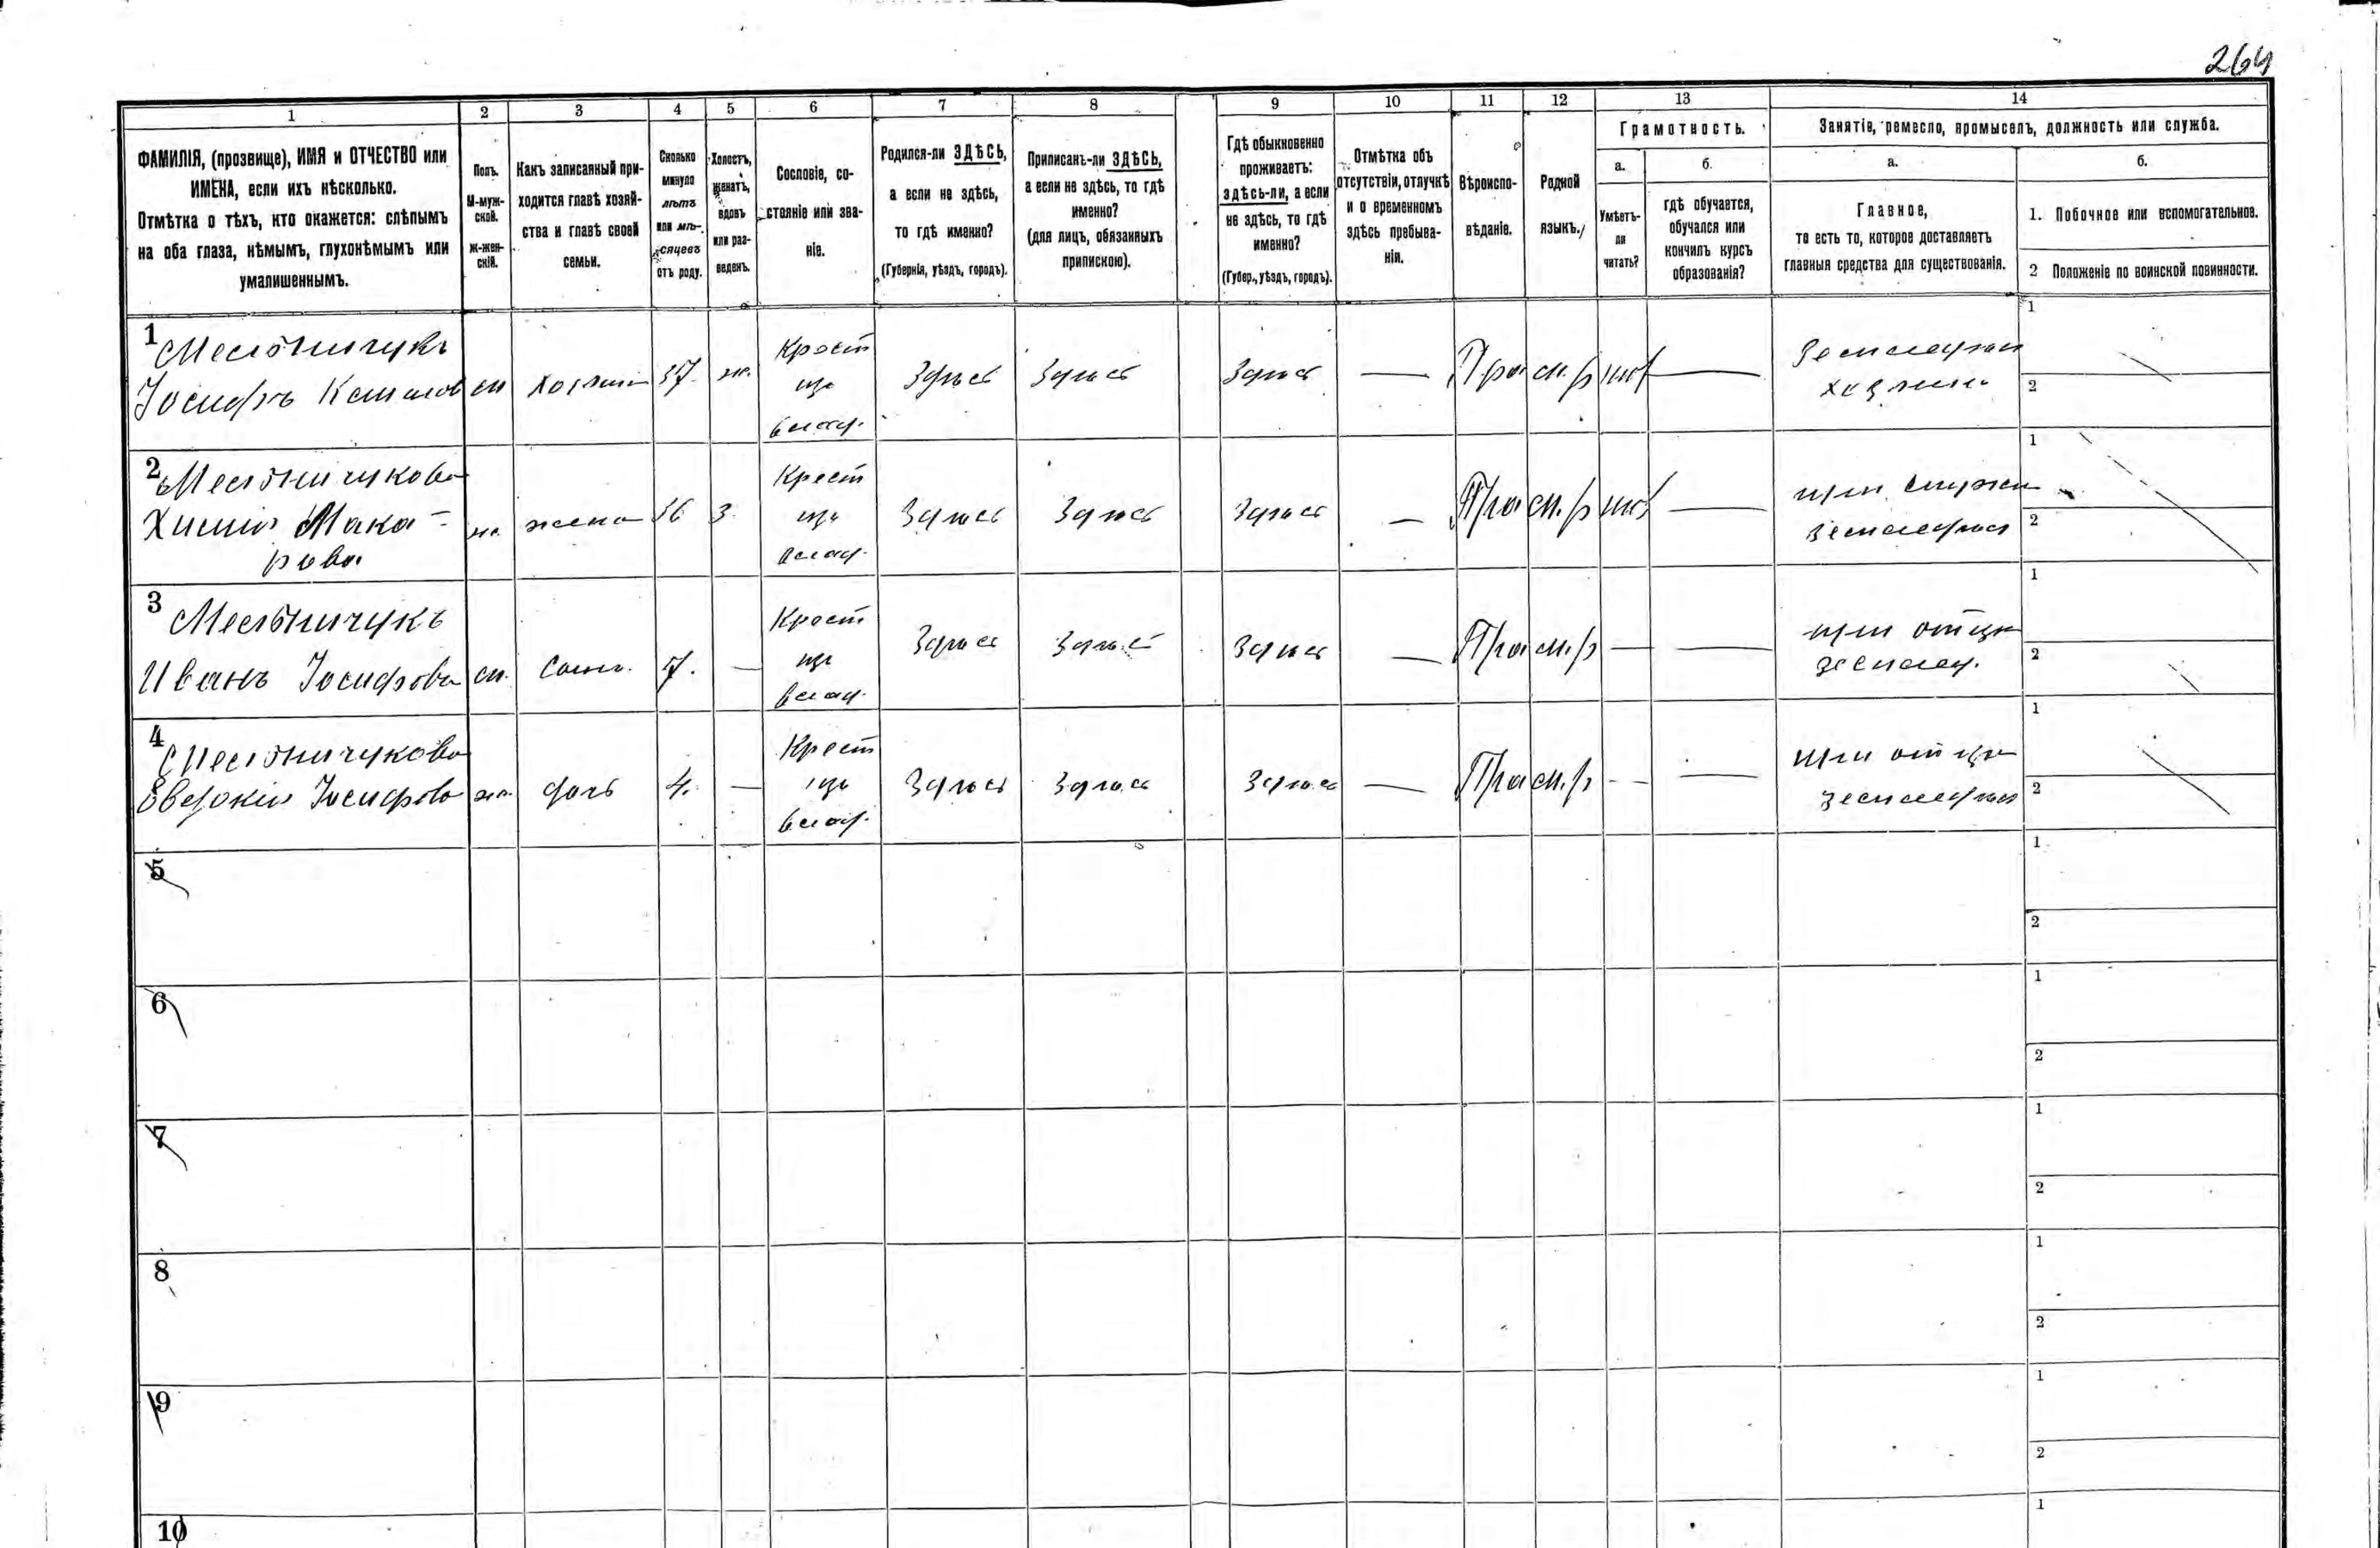 264
1 2 3 4 5 6 7 8 9 10 11 12 13 14
ФАМИЛІЯ, (прозвище), ИМЯ и ОТЧЕСТВО или
ИМЕНА, если ихъ нѣсколько.
Отмѣтка о тѣхъ, кто окажется: слѣпымъ
на оба глаза, нѣмымъ, глухонѣмымъ или
умалишеннымъ.
Полъ.
М-муж-
ской.
Ж-жен-
скій.
Какъ записанный при-
ходится главѣ хозяй-
ства и главѣ своей
семьи.
Сколько
минуло
лѣтъ
или мѣ-
сяцевъ
отъ роду.
Холостъ,
женатъ,
вдовъ
или раз-
веденъ.
Сословіе, со-
стояніе или зва-
ніе.
Родился-ли ЗДѢСЬ,
а если не здѣсь,
то гдѣ именно?
(Губернія, уѣздъ, городъ).
Приписанъ-ли ЗДѢСЬ,
а если не здѣсь, то гдѣ
именно?
(для лицъ, обязанныхъ
припискою).
Гдѣ обыкновенно
проживаетъ:
здѣсь-ли, а если
не здѣсь, то гдѣ
именно?
(Губер., уѣздъ, городъ).
Отмѣтка объ
отсутствіи, отлучкѣ
и о временномъ
здѣсь пребыва-
ніи.
Вѣроиспо-
вѣданіе.
Родной
языкъ.
Грамотность.
а.
Умѣетъ-
ли
читать?
б.
гдѣ обучается,
обучался или
кончилъ курсъ
образованія?
Занятіе, ремесло, промыселъ, должность или служба.
а.
Главное,
то есть то, которое доставляетъ
главныя средства для существованія.
б.
1. Побочное или вспомогательное.
2 Положеніе по воинской повинности.
1 Мельничукъ
Іосифъ м хозяин 37. ж.
Крест
влад.
Здѣсь Здѣсь Здѣсь — Пра м.р нѣт —
хозяин
1
2
2 Мельничукова
Мака-
рова ж. жена 36 З.
Крест
влад.
Здѣсь Здѣсь Здѣсь — Пра м.р нѣт —
при
1
2
3 Мельничукъ
Иванъ Іосифова м. сынъ. 7. —
Крест
влад.
Здѣсь Здѣсь Здѣсь — Пра м.р — —
при отцѣ
землед.
1
2
4 Мельничукова
Евдокія Іосифова ж. дочь 4. —
Крест
влад.
Здѣсь Здѣсь Здѣсь — Пра м.р — —
при отцѣ
1
2
5
1
2
6
1
2
7
1
2
8
1
2
9
1
2
10
1